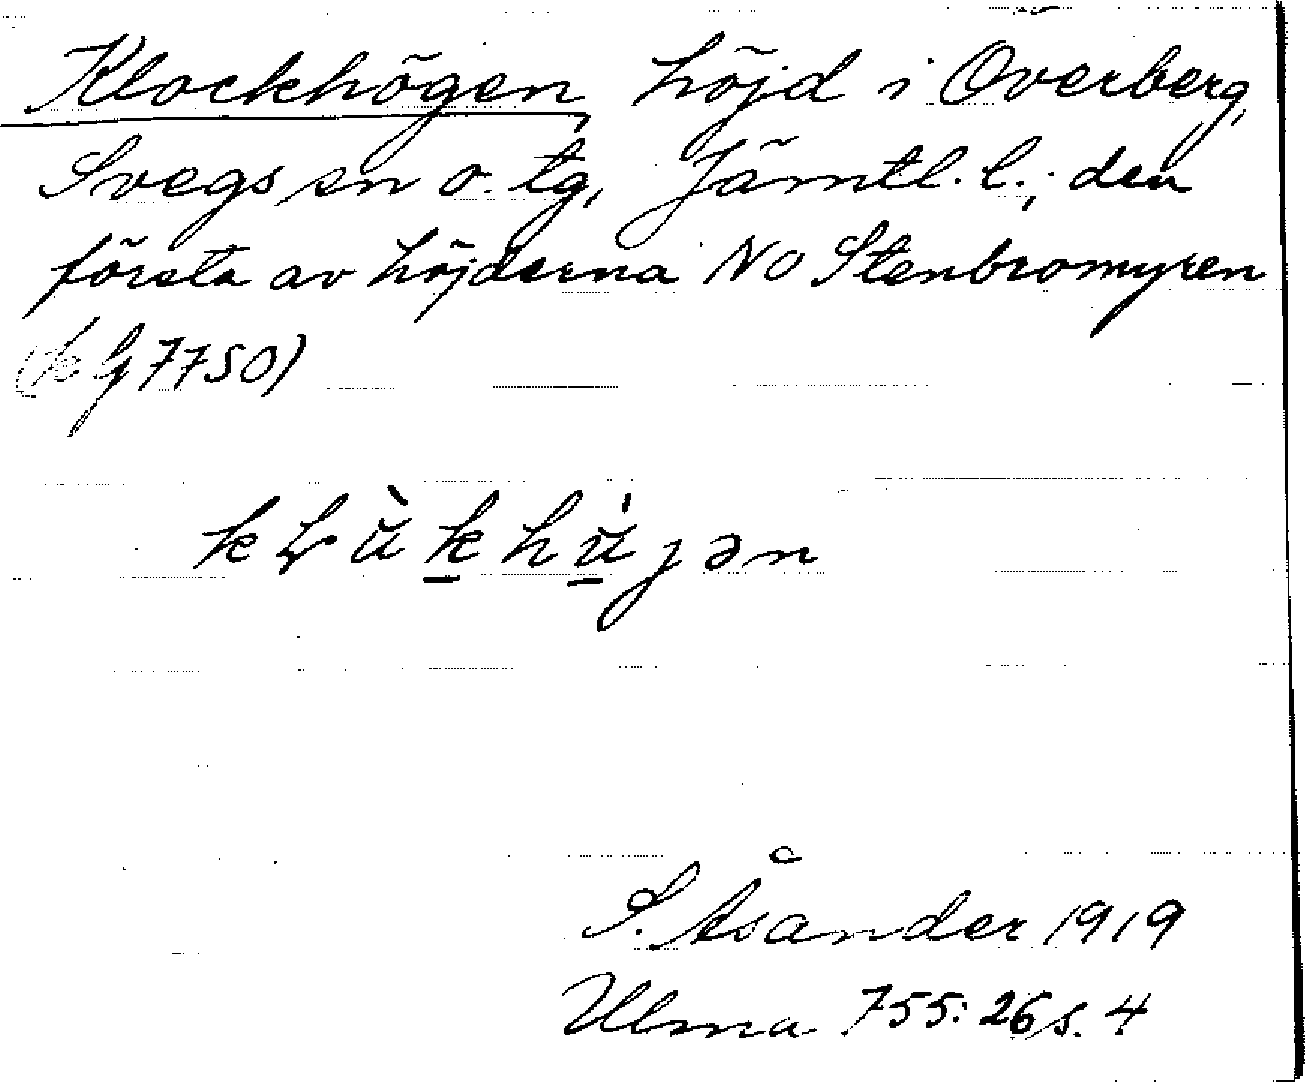 Klockhögen, höjd i Överberg,
Svegs sn o. tg, Jämtl. l.; den
första av höjderna NO Stenbromyren
(k G 7750)
S. Åsander 1919
Ulma 755: 26 s. 4